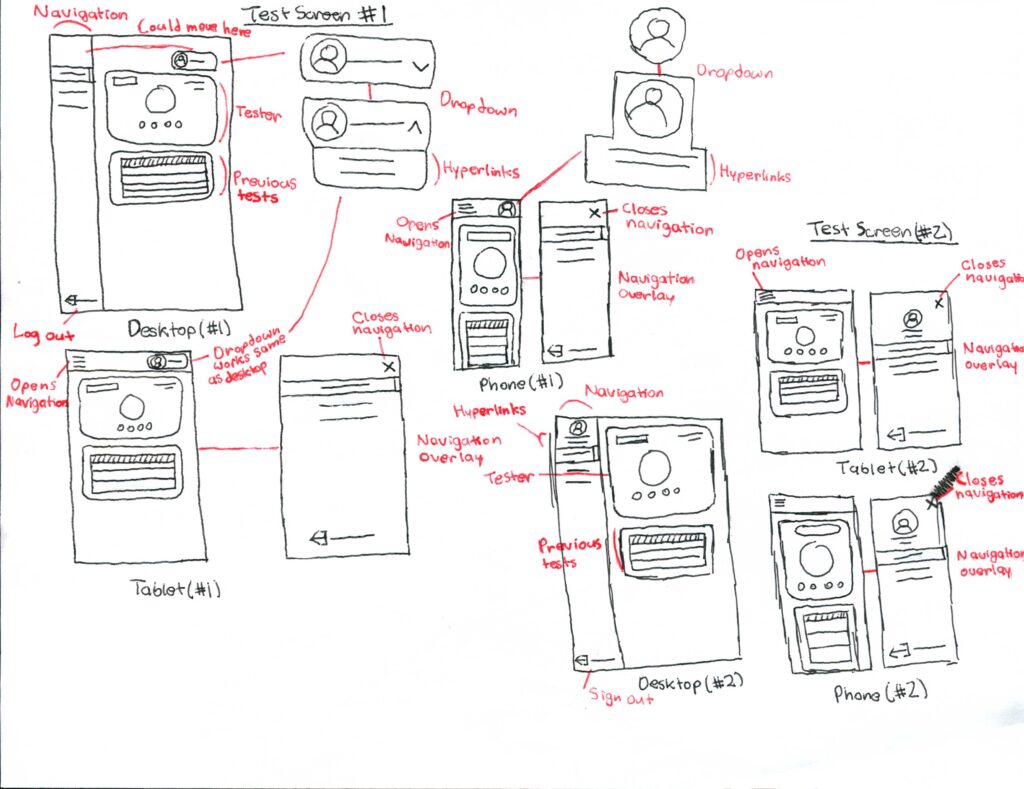 Test Screen #1
Navigation
Could move here
Tester
Previous
tests
Dropdown
Hyperlinks
Log out
Desktop (#1)
Dropdown
Hyperlinks
Opens
Navigation
Closes
navigation
Navigation
Overlay
Phone (#1)
Opens
Navigation
Dropdown
works same
as desktop
Closes
navigation
Navigation
overlay
Tablet (#1)
Test Screen (#2)
Opens
navigation
Closes
navigation
Navigation
overlay
Tablet (#2)
Navigation
Hyperlinks
Tester
Previous
tests
Sign out
Desktop (#2)
Closes
navigation
Navigation
overlay
Phone (#2)